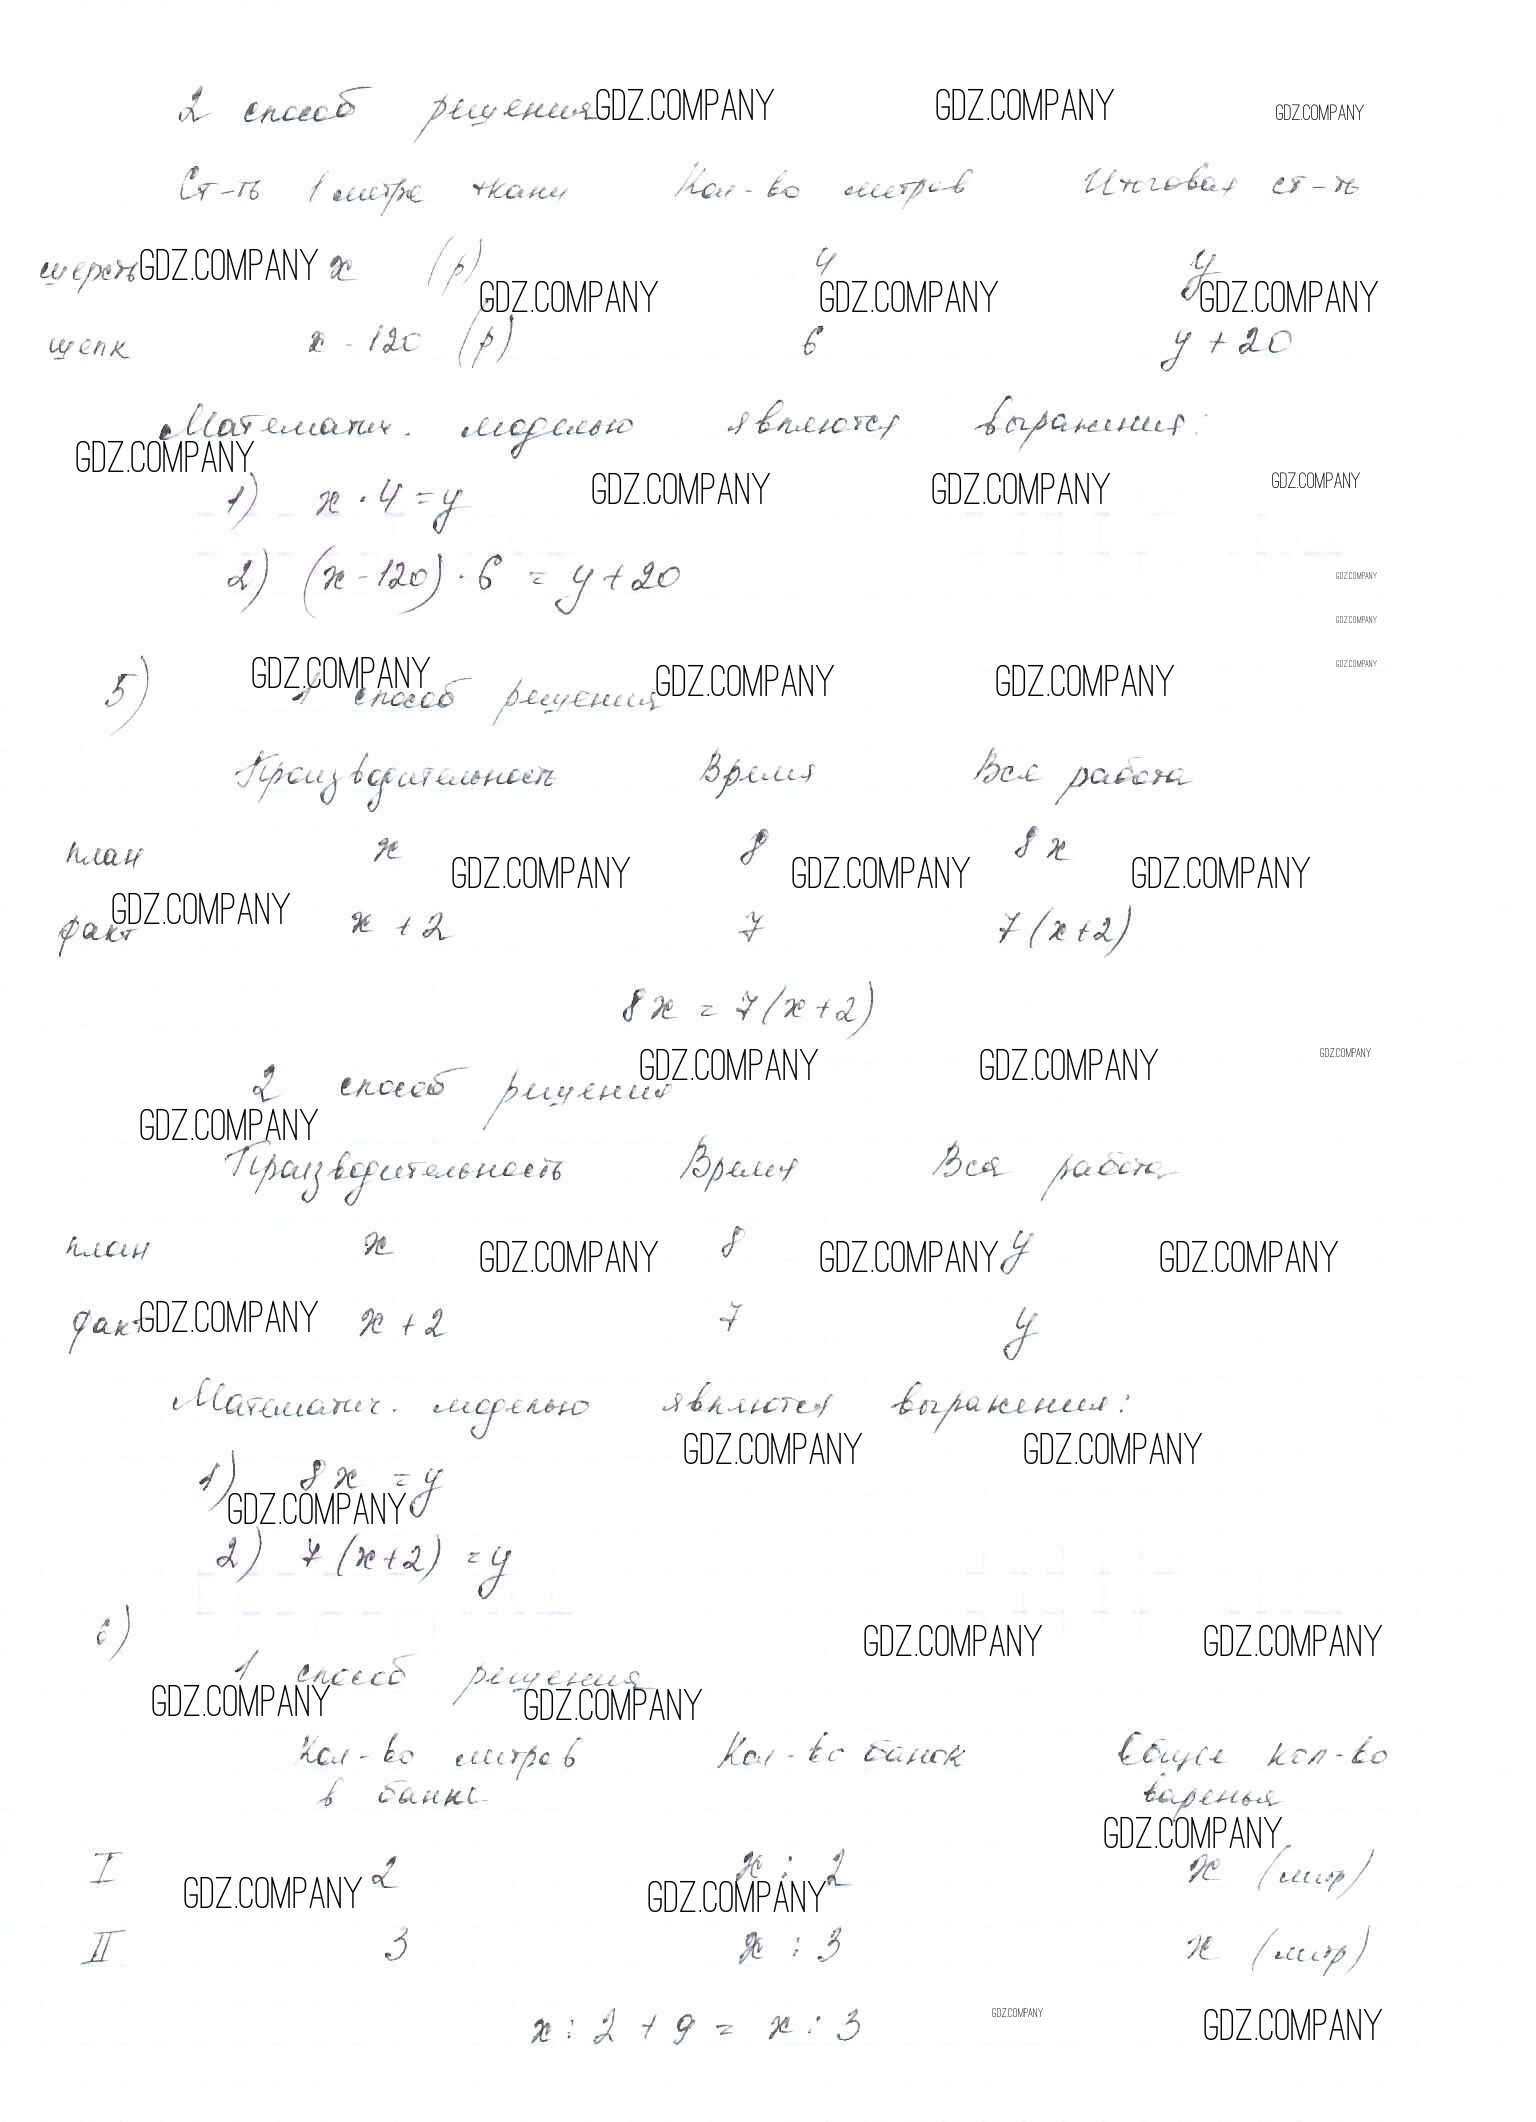 2 способ решения GDZ.COMPANY GDZ.COMPANY GDZ.COMPANY
Ст-ть 1 метра ткани Кол-во метров Итоговая ст-ть
шерсть GDZ.COMPANY x (р) 4 y
GDZ.COMPANY GDZ.COMPANY GDZ.COMPANY
шелк x - 120 (р) 6 y + 20
Математич. моделью являются выражения:
GDZ.COMPANY
1) x · 4 = y GDZ.COMPANY GDZ.COMPANY GDZ.COMPANY
2) (x - 120) · 6 = y + 20 GDZ.COMPANY
GDZ.COMPANY
GDZ.COMPANY GDZ.COMPANY GDZ.COMPANY GDZ.COMPANY
5) 1 способ решения
Производительность Время Вся работа
план x 8 8x
GDZ.COMPANY GDZ.COMPANY GDZ.COMPANY
GDZ.COMPANY
факт x + 2 7 7(x+2)
8x = 7(x+2)
GDZ.COMPANY GDZ.COMPANY GDZ.COMPANY
2 способ решения
GDZ.COMPANY
Производительность Время Вся работа
план x GDZ.COMPANY 8 GDZ.COMPANY y GDZ.COMPANY
факт GDZ.COMPANY x + 2 7 y
Математич. моделью являются выражения:
GDZ.COMPANY GDZ.COMPANY
1) 8x = y
GDZ.COMPANY
2) 7(x+2) = y
6) GDZ.COMPANY GDZ.COMPANY
1 способ решения
GDZ.COMPANY GDZ.COMPANY
Кол-во литров Кол-во банок Общее кол-во
в банке варенья
GDZ.COMPANY
I 2 x : 2 x (литр)
GDZ.COMPANY GDZ.COMPANY
II 3 x : 3 x (литр)
x : 2 + 9 = x : 3 GDZ.COMPANY GDZ.COMPANY